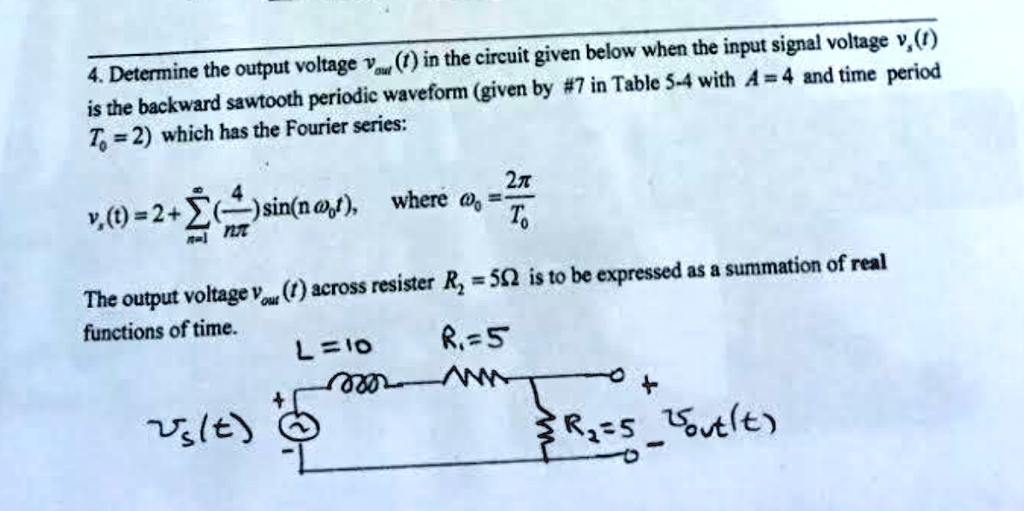 4. Determine the output voltage v_out (t) in the circuit given below when the input signal voltage v_s(t)
is the backward sawtooth periodic waveform (given by #7 in Table 5-4 with A = 4 and time period
T₀ = 2) which has the Fourier series:
v_s(t) = 2 + ∑_{n=1}^{∞} (4/nπ) sin(n ω₀t), where ω₀ = 2π/T₀
The output voltage v_out (t) across resister R₂ = 5Ω is to be expressed as a summation of real
functions of time.
L = 10 R₁ = 5
+ +
v_s(t) ~ R₂ = 5 v_out(t)
- -